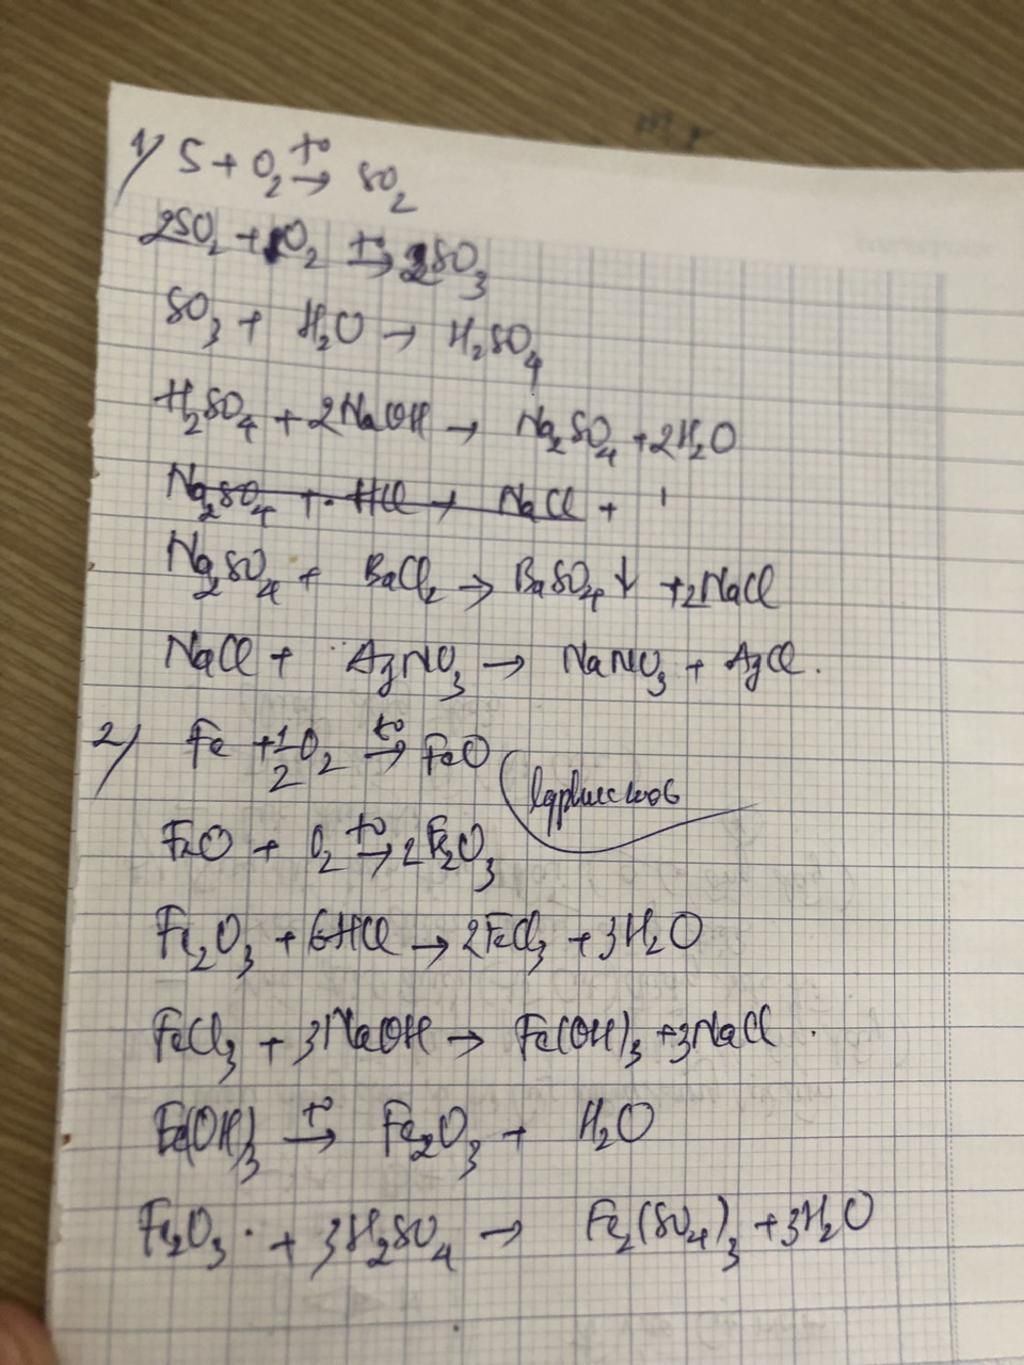 1) S + O₂ →ᵗ° SO₂
2SO₂ + O₂ →ᵗ° 2SO₃
SO₃ + H₂O → H₂SO₄
H₂SO₄ + 2NaOH → Na₂SO₄ + 2H₂O
Na₂SO₄ + HCl → NaCl +
Na₂SO₄ + BaCl₂ → BaSO₄↓ + 2NaCl
NaCl + AgNO₃ → NaNO₃ + AgCl.
2) Fe + 1/2 O₂ →ᵗ° FeO
FeO + O₂ →ᵗ° 2Fe₂O₃
Fe₂O₃ + 6HCl → 2FeCl₃ + 3H₂O
FeCl₃ + 3NaOH → Fe(OH)₃ + 3NaCl
Fe(OH)₃ →ᵗ° Fe₂O₃ + H₂O
Fe₂O₃ + 3H₂SO₄ → Fe₂(SO₄)₃ + 3H₂O